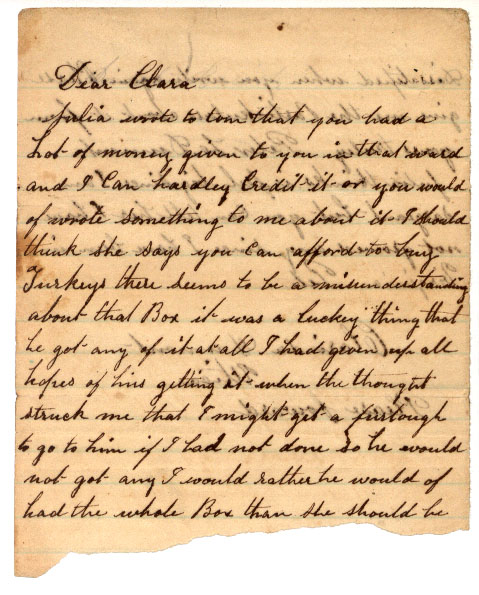 Dear Clara
Julia wrote to tom that you had a
Lot of money given to you in that ward
and I Can hardley Credit it or you would
of wrote something to me about it I should
think she says you can afford to buy
Turkeys there seems to be a misunderstanding
about that Box it was a luckey thing that
he got any of it at all I had given up all
hopes of his getting it when the thought
struck me that I might get a furlough
to go to him if I had not done so he would
not got any I would rather he would of
had the whole Box than she should be